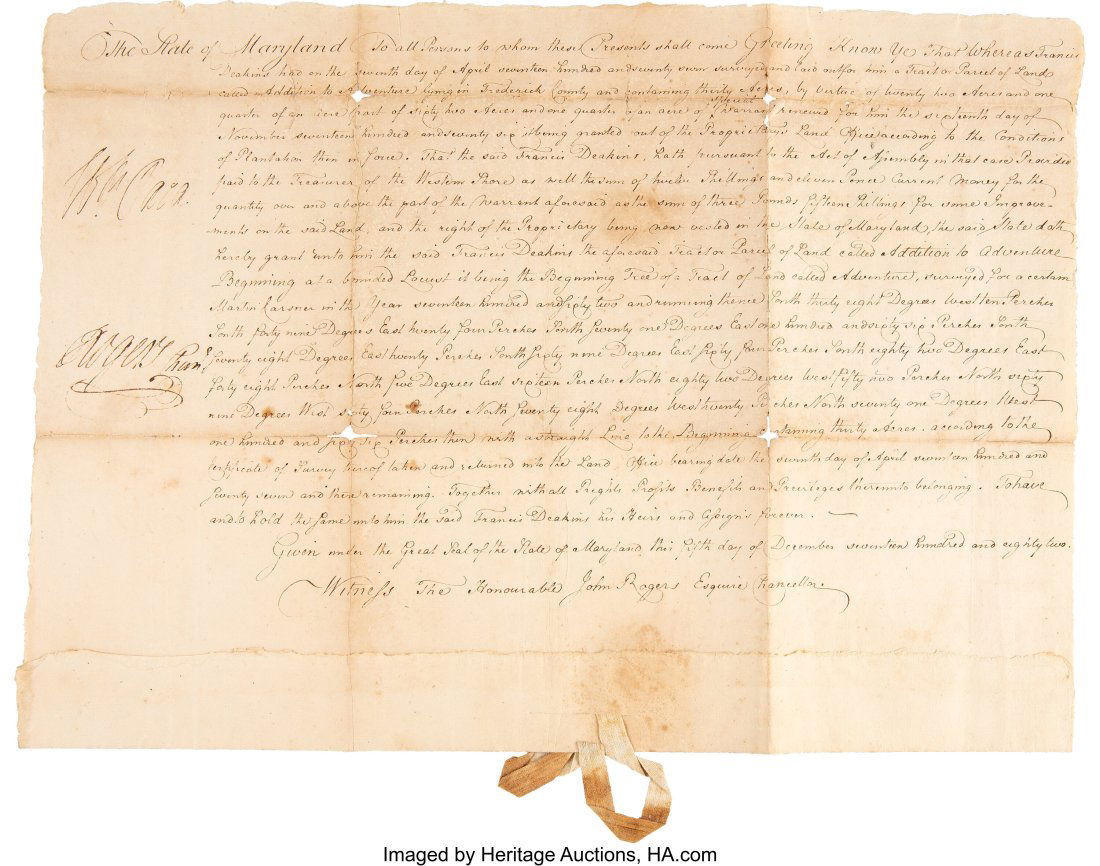 The State of Maryland To all Persons to whom these Presents shall come Greeting Know Ye That Whereas Francis
Deakins had on the seventh day of April seventeen hundred and seventy seven surveyed and laid out for him a Tract or Parcel of Land
called Addition to Adventure lying in Frederick County and containing thirty Acres, by virtue of twenty two Acres and one
quarter of an acre part of sixty two Acres and one quarter of an acre of Special Warrant renewed for him the sixteenth day of
November seventeen hundred and seventy six it being granted out of the Proprietary's Land Office according to the Conditions
of Plantation then in force. That the said Francis Deakins, hath pursuant to the Act of Assembly in that case Provided
paid to the Treasurer of the Western Shore as well the sum of twelve Shillings and eleven Pence Current money for the
quantity over and above the part of the warrant aforesaid as the sum of three Pounds fifteen shillings for some Improve-
ments on the said Land, and the right of the Proprietary being now vested in the State of Maryland, the said State doth
hereby grant unto him the said Francis Deakins the aforesaid Tract or Parcel of Land called Addition to Adventure
Beginning at a bounded Locust it being the Beginning Tree of a Tract of Land called Adventure, surveyed for a certain
Martin in the Year seventeen hundred and sixty two and running thence South thirty eight Degrees West ten Perches
South forty nine Degrees East twenty four Perches South seventy one Degrees East one hundred and sixty six Perches South
seventy eight Degrees East twenty Perches South sixty nine Degrees East sixty four Perches South eighty two Degrees East
forty eight Perches North five Degrees East sixteen Perches North eighty two Degrees West fifty two Perches North sixty
nine Degrees West sixty four Perches North seventy eight Degrees West twenty Perches North seventy one Degrees West
one hundred and sixty six Perches then with a straight Line to the Beginning containing thirty Acres. according to the
Certificate of Survey thereof taken and returned into the Land Office bearing date the seventh day of April seventeen hundred and
seventy seven and there remaining. Together with all Rights Profits Benefits and Privileges thereunto belonging. To have
and to hold the same unto him the said Francis Deakins his Heirs and Assigns forever.
Given under the Great Seal of the State of Maryland this fifth day of December seventeen hundred and eighty two.
Witness The Honourable John Rogers Esquire Chancellor.
Wm Paca
Rogers Chan
Imaged by Heritage Auctions, HA.com